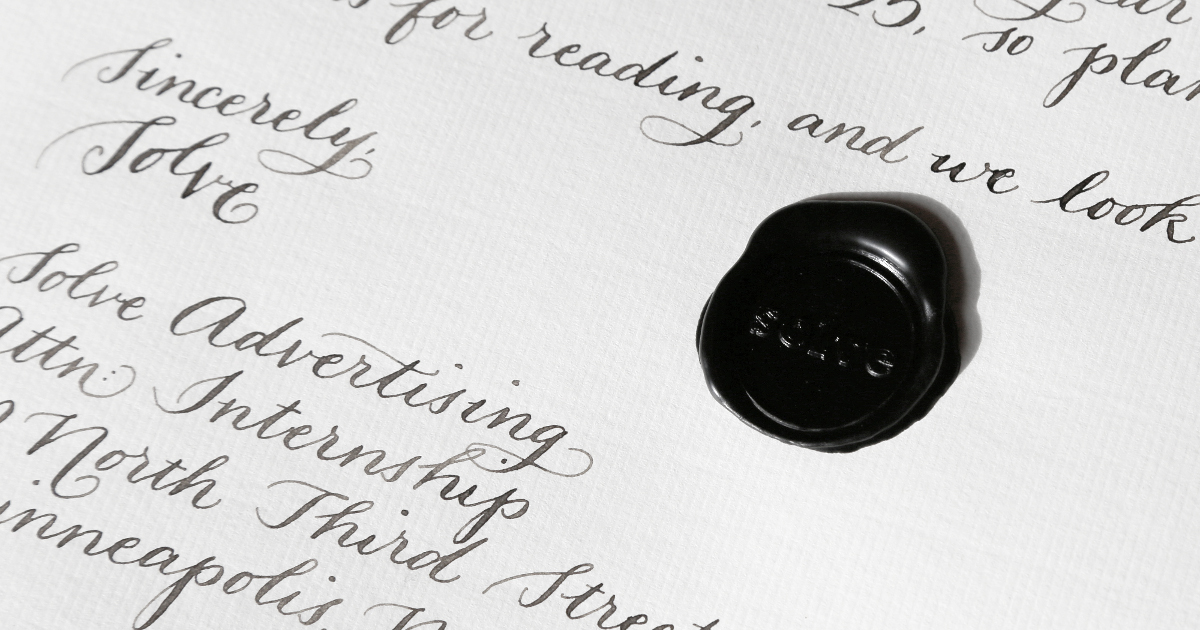 for reading, and we look
so plan
Sincerely,
Solve
solve
Solve Advertising
Attn: Internship
North Third Street
inneapolis,